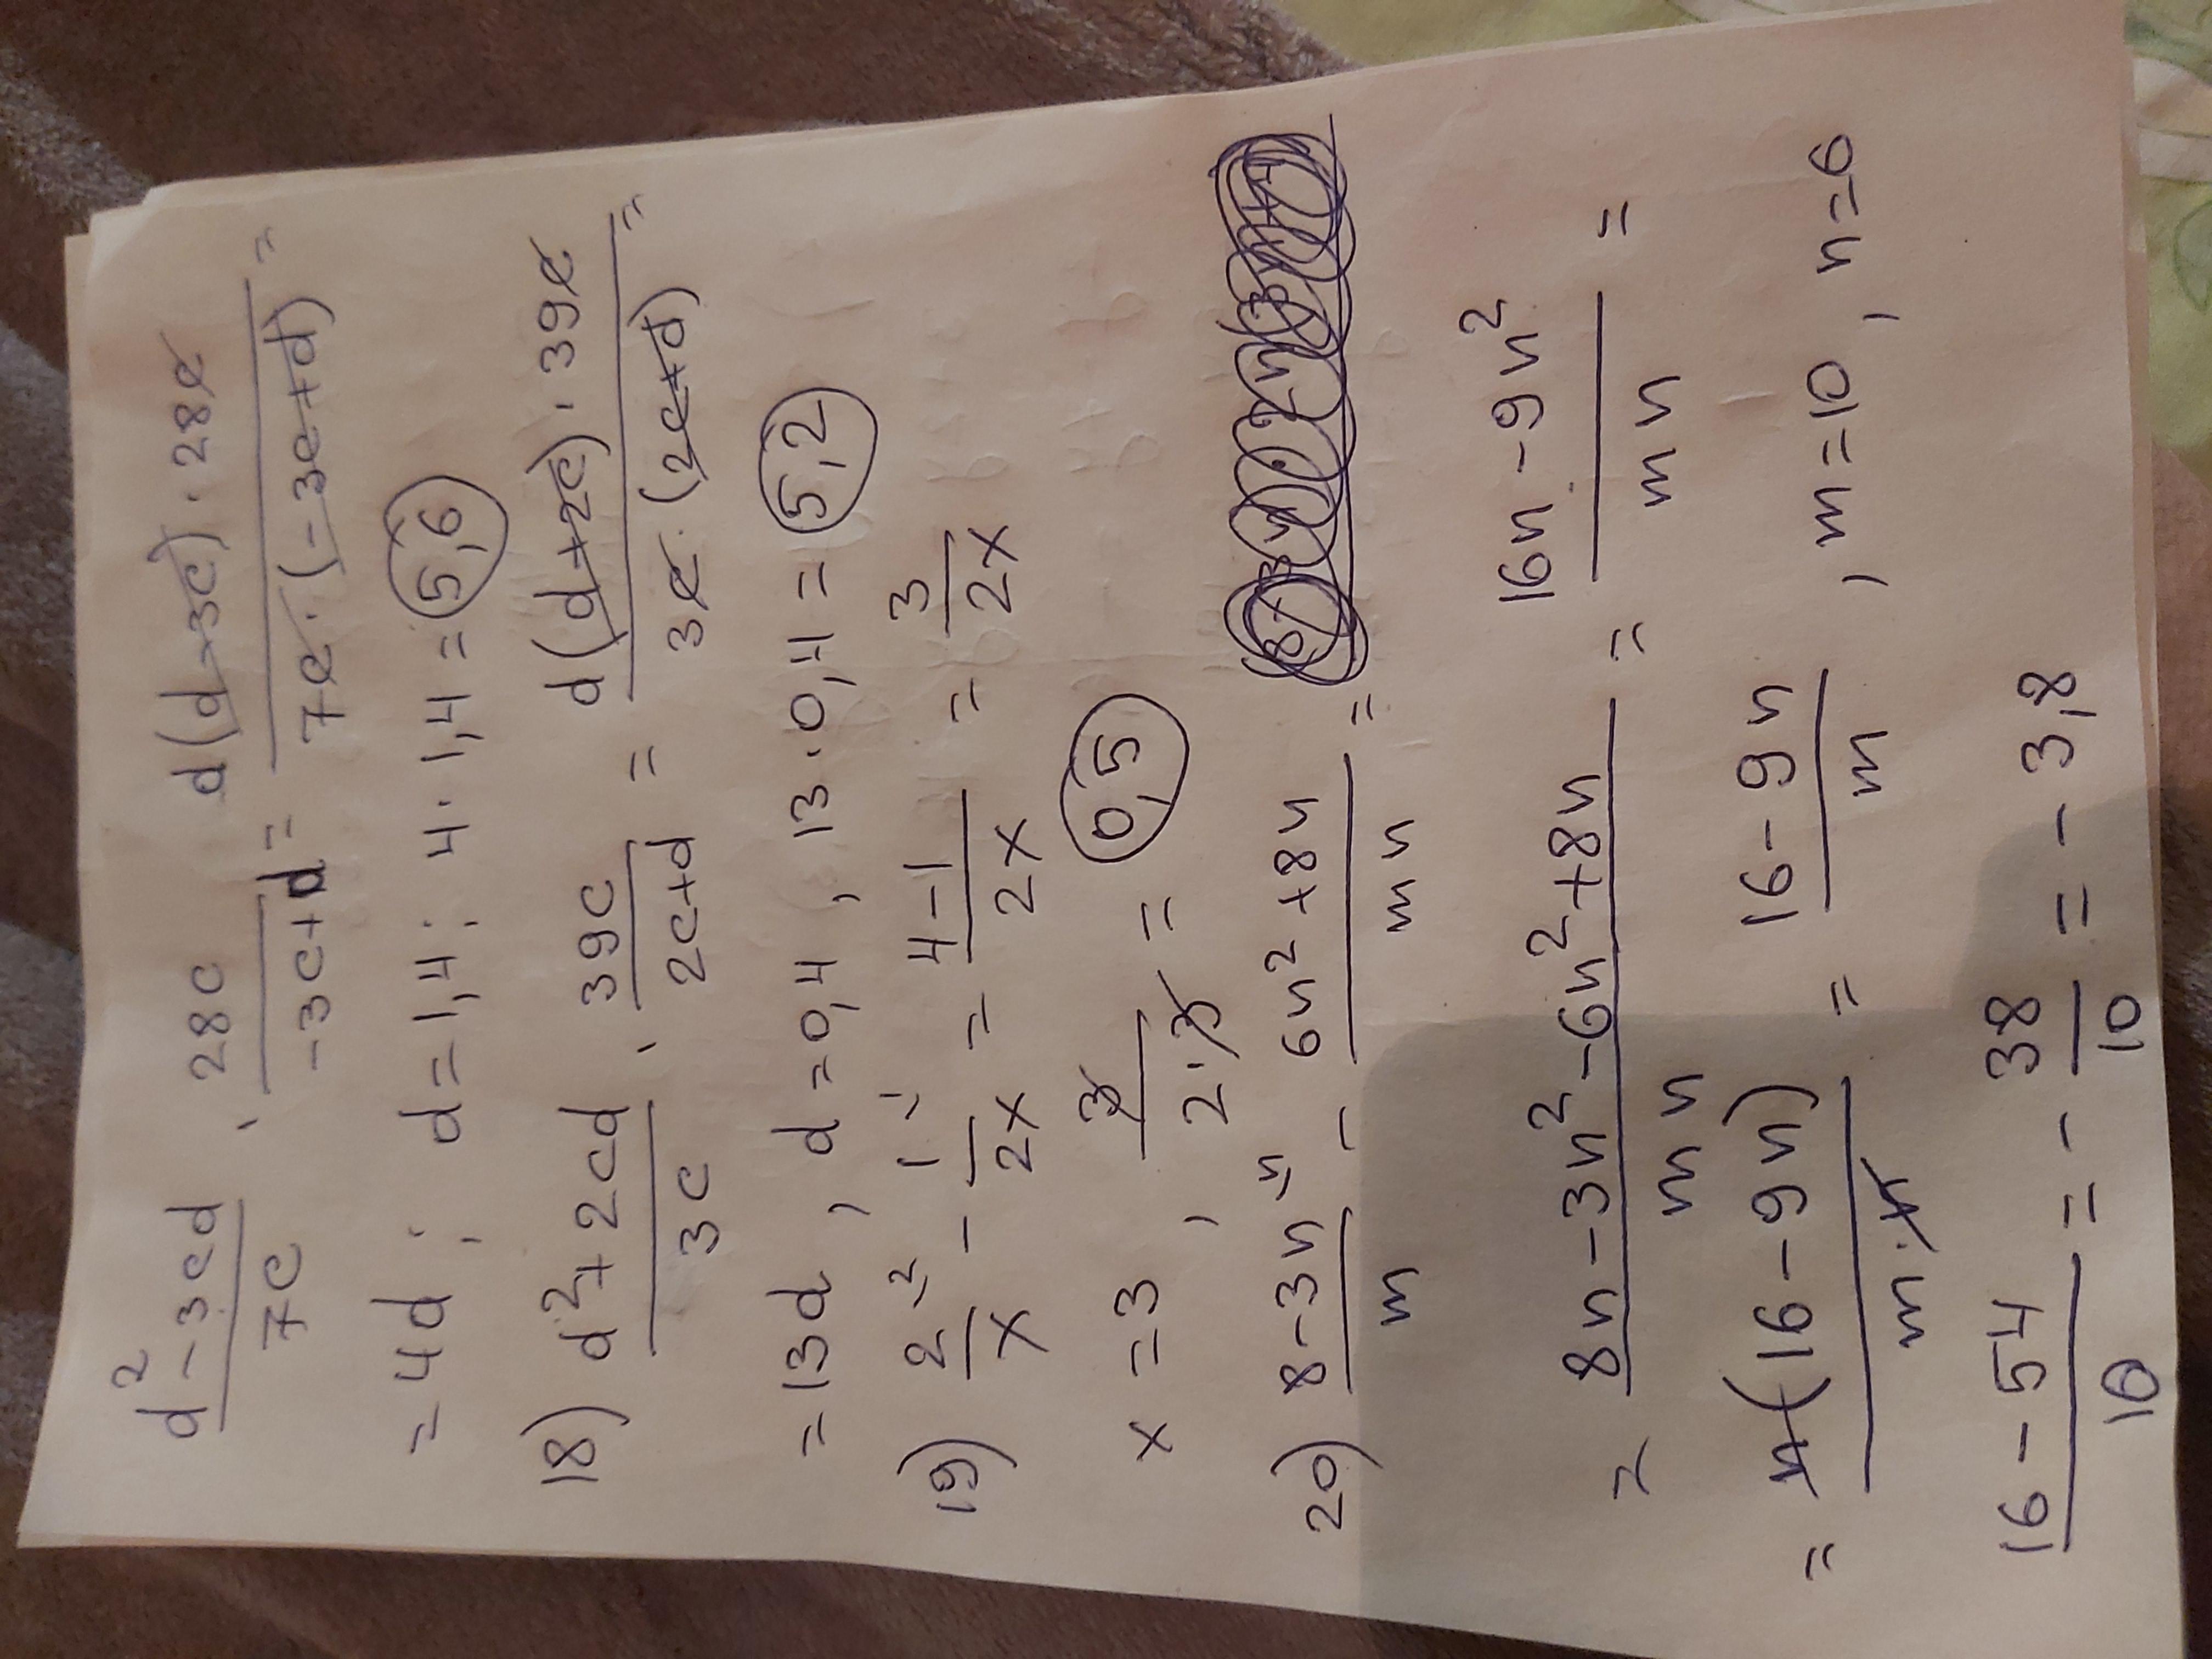 (d² - 3cd)/(7c) · (28c)/(-3c+d) = (d(d-3c)·28c)/(7c·(-3c+d)) =
= 4d ; d=1,4 ; 4·1,4 = 5,6
18) (d²+2cd)/(3c) · (39c)/(2c+d) = (d(d+2c)·39c)/(3c·(2c+d)) =
= 13d , d=0,4 , 13·0,4 = 5,2
19) 2/x - 1/(2x) = (4-1)/(2x) = 3/(2x)
x=3 , 3/(2·3) = 0,5
20) (8-3n)/m - (6n²+8n)/(mn) =
= (8n-3n²-6n²+8n)/(mn) = (16n-9n²)/(mn) =
= (n(16-9n))/(m·n) = (16-9n)/m , m=10 , n=6
(16-54)/10 = -38/10 = -3,8